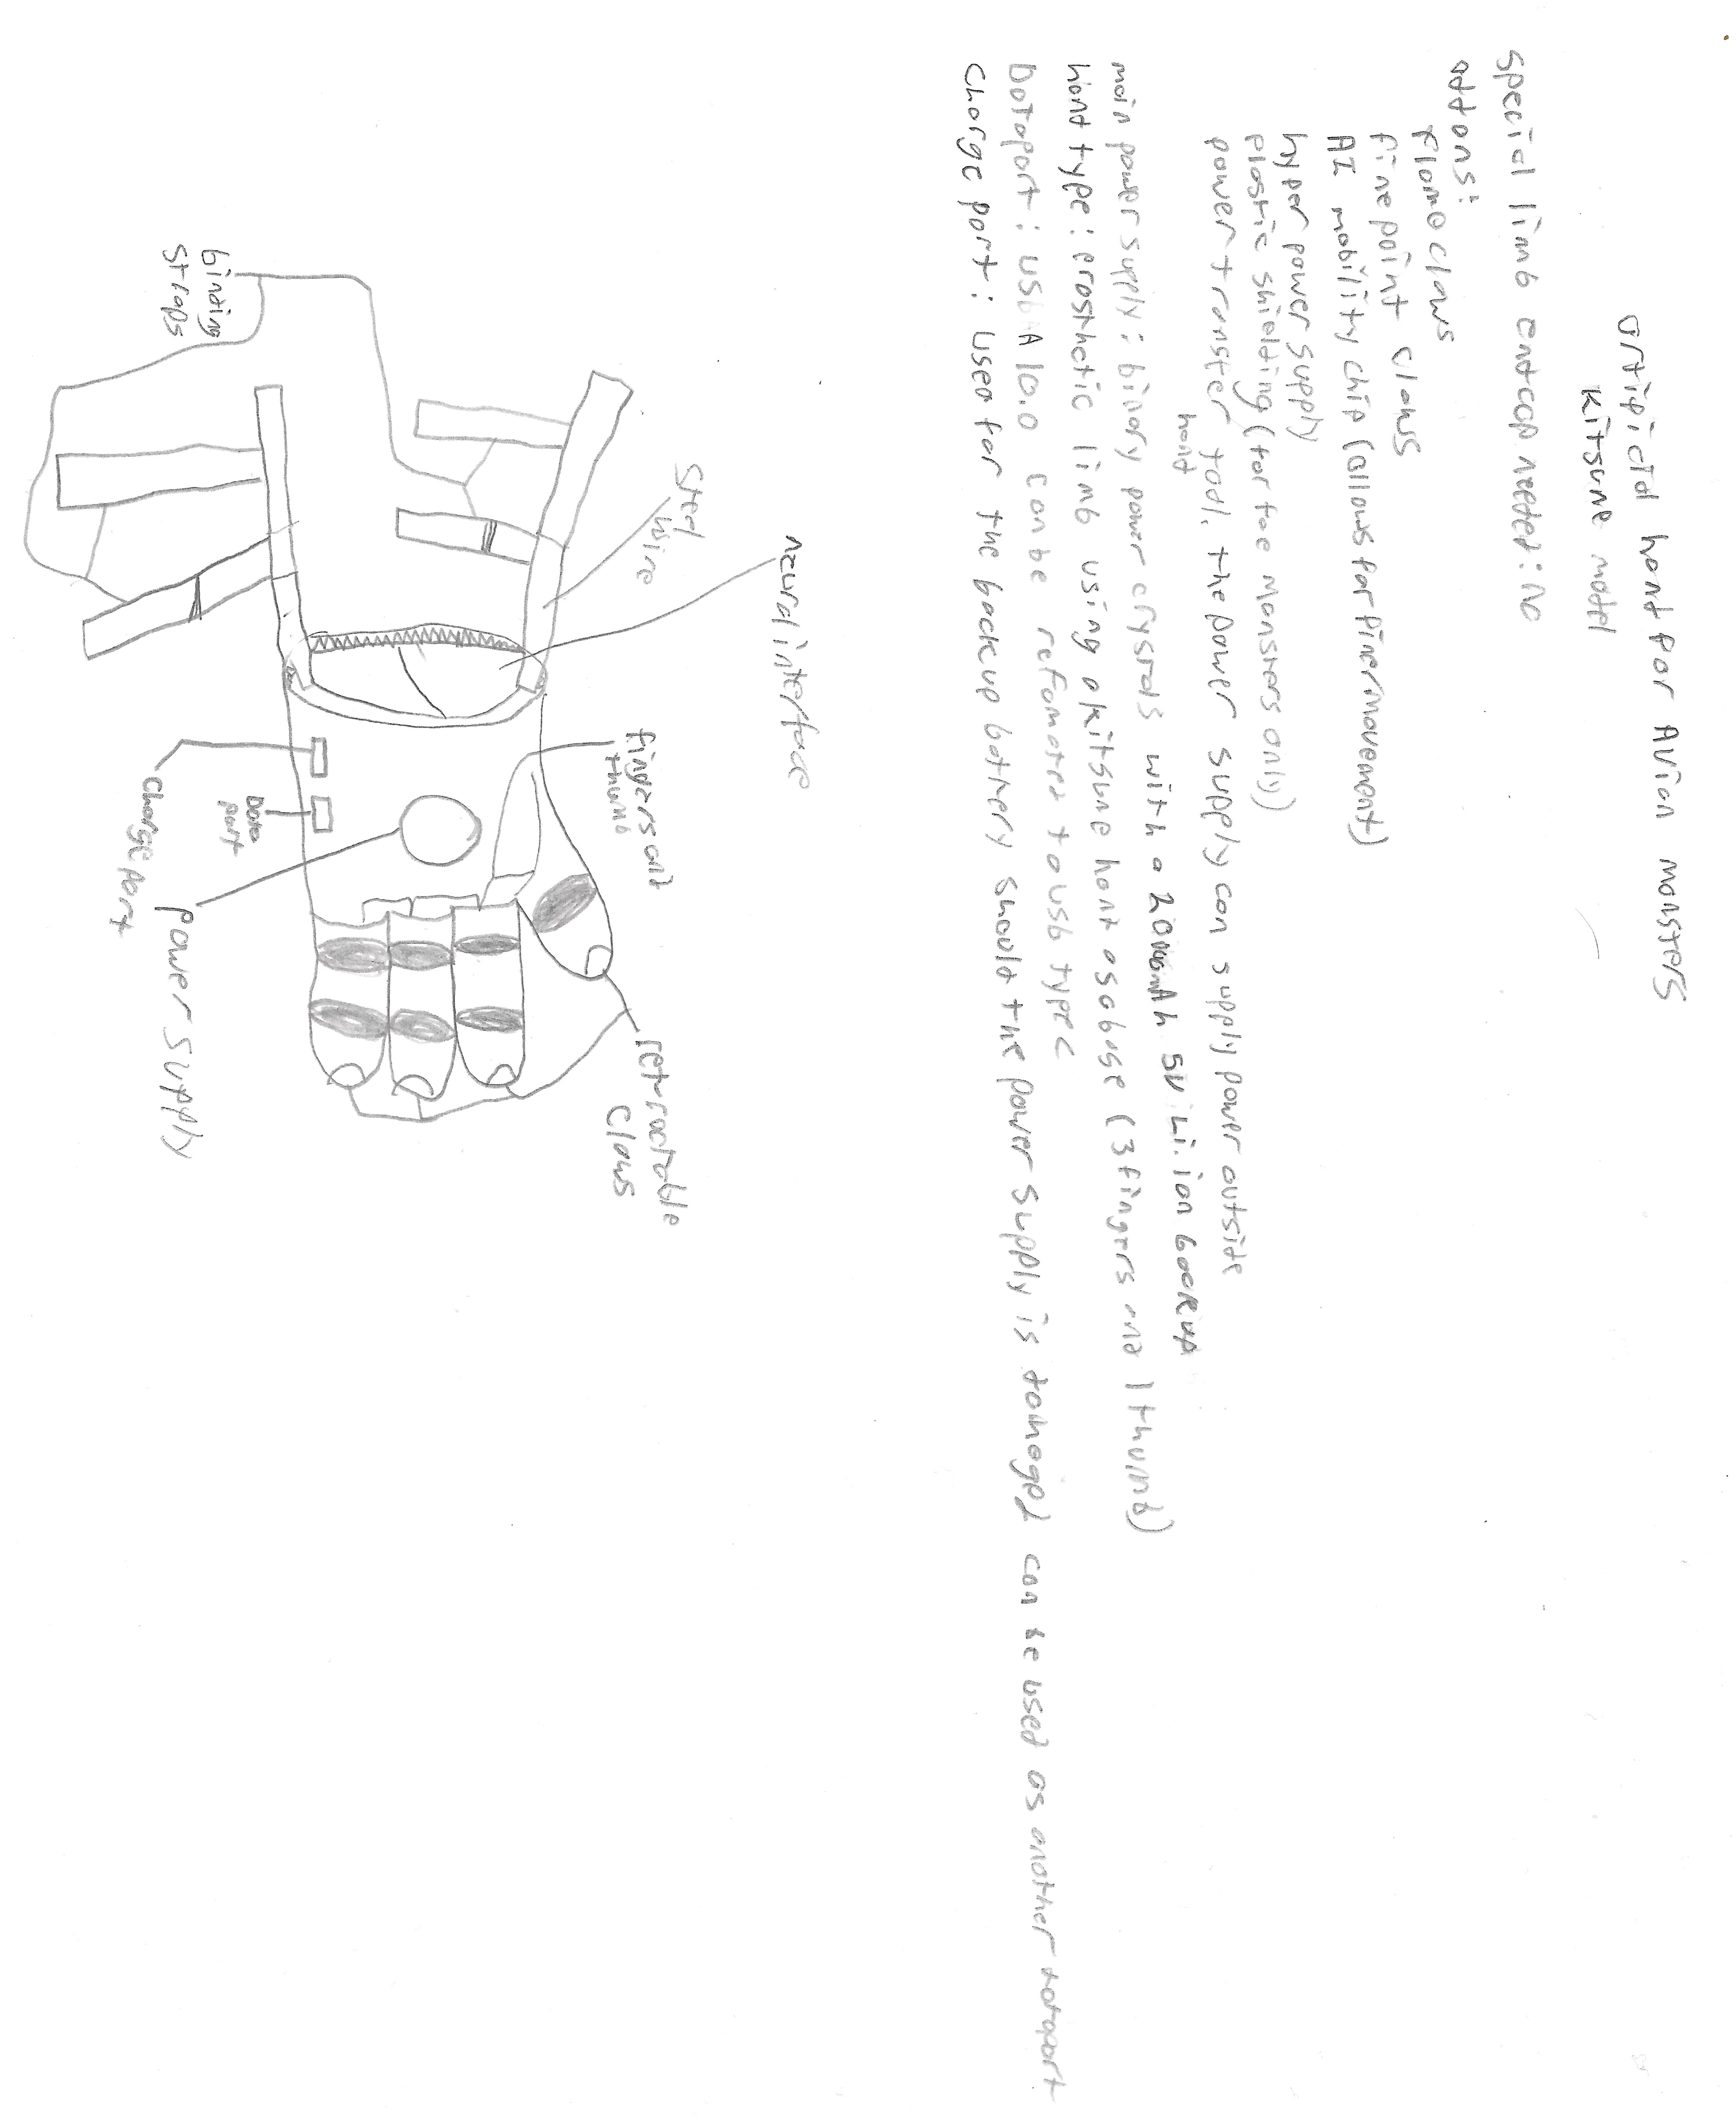 artipicial hand for Avian monsters
Kitsune model
special limb endcap needed: no
addons:
flame claws
finepoint claws
AI mobility chip (allows for finermovement)
hyper power supply
plastic shielding (for toe monsters only)
power transfer tool, the power supply can supply power outside
hand
main power supply: binary power crystals with a 20000mAh 5V Li.ion backup
hand type: prosthetic limb using a kitsune hand as a base (3 fingers and 1 thumb)
Dataport: usb A 10.0 can be reformated to usb type C
charge port: used for the backup battery should the power supply is damaged can be used as another dataport
neural interface
Steel
wire
binding
straps
fingers and
thumb
retractable
claws
Data
port
charge port
power supply